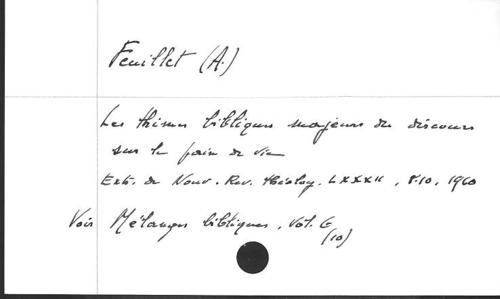 Feuillet (A.)
Les thèmes bibliques majeurs du discours
sur le pain de vie
Extr. de Nouv. Rev. théolog. LXXXII, 8.10, 1960
Voir Mélanges bibliques, Vol. 6
(10)